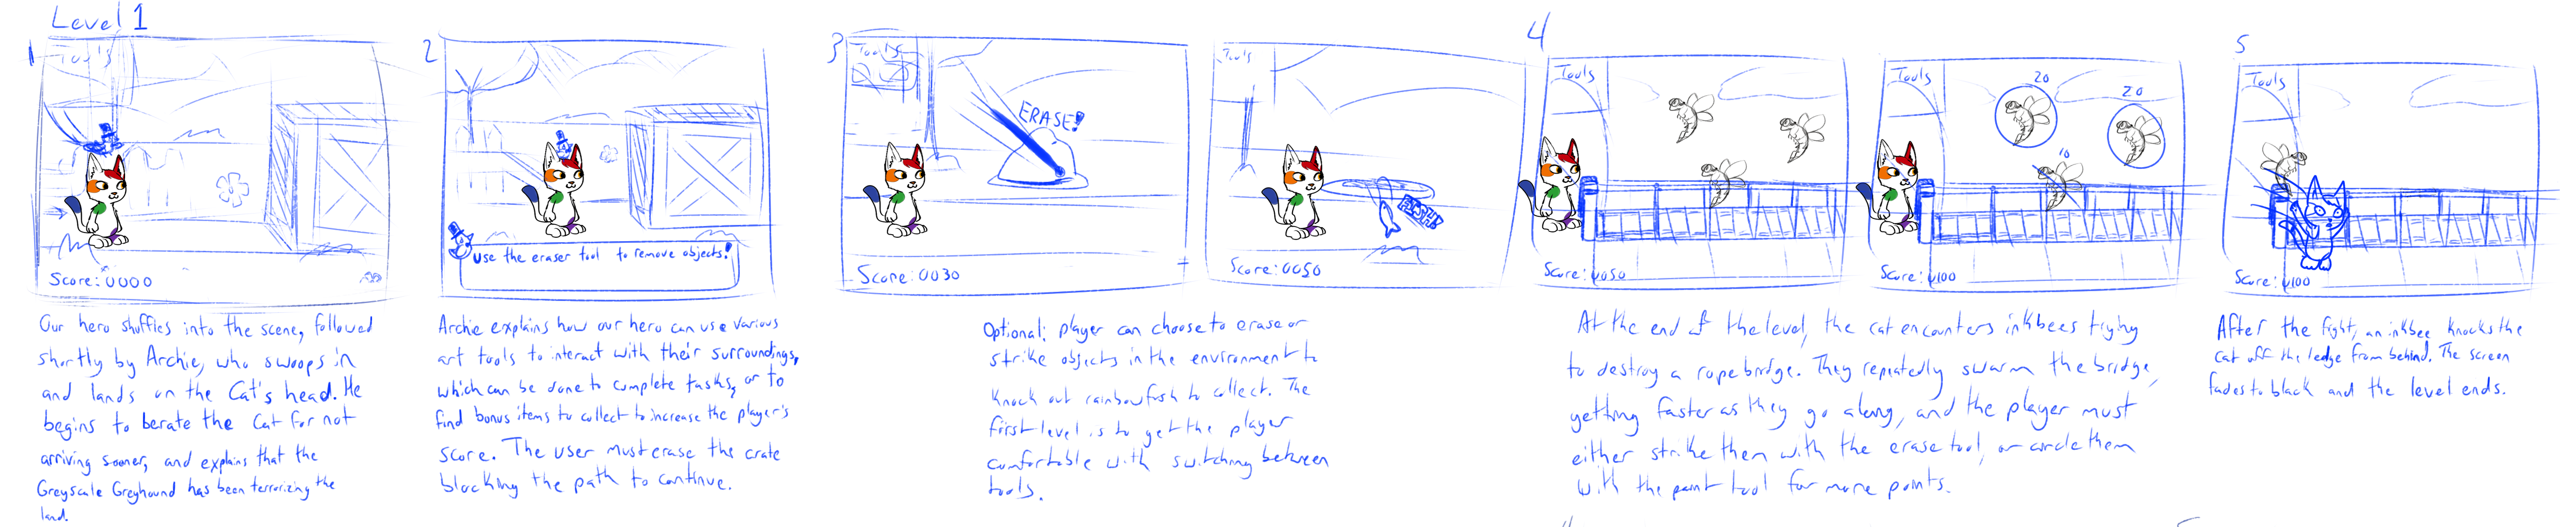 Level 1
1
Tools
Score: 0000
Our hero shuffles into the scene, followed
shortly by Archie, who swoops in
and lands on the Cat's head. He
begins to berate the Cat for not
arriving sooner, and explains that the
Greyscale Greyhound has been terrorizing the
land.
2
use the eraser tool to remove objects!
Archie explains how our hero can use various
art tools to interact with their surroundings,
which can be done to complete tasks, or to
find bonus items to collect to increase the player's
score. The user must erase the crate
blocking the path to continue.
3
Tools
ERASE!
Score: 0030
Tools
FISH!
Score: 0050
Optional: player can choose to erase or
strike objects in the environment to
knock out rainbow fish to collect. The
first level is to get the player
comfortable with switching between
tools.
4
Tools
Score: 0050
Tools
20
20
10
Score: 0100
At the end of the level, the cat encounters inkbees trying
to destroy a rope bridge. They repeatedly swarm the bridge,
getting faster as they go along, and the player must
either strike them with the erase tool, or circle them
with the paint tool for more points.
5
Tools
Score: 0100
After the fight, an inkbee knocks the
cat off the ledge from behind. The screen
fades to black and the level ends.